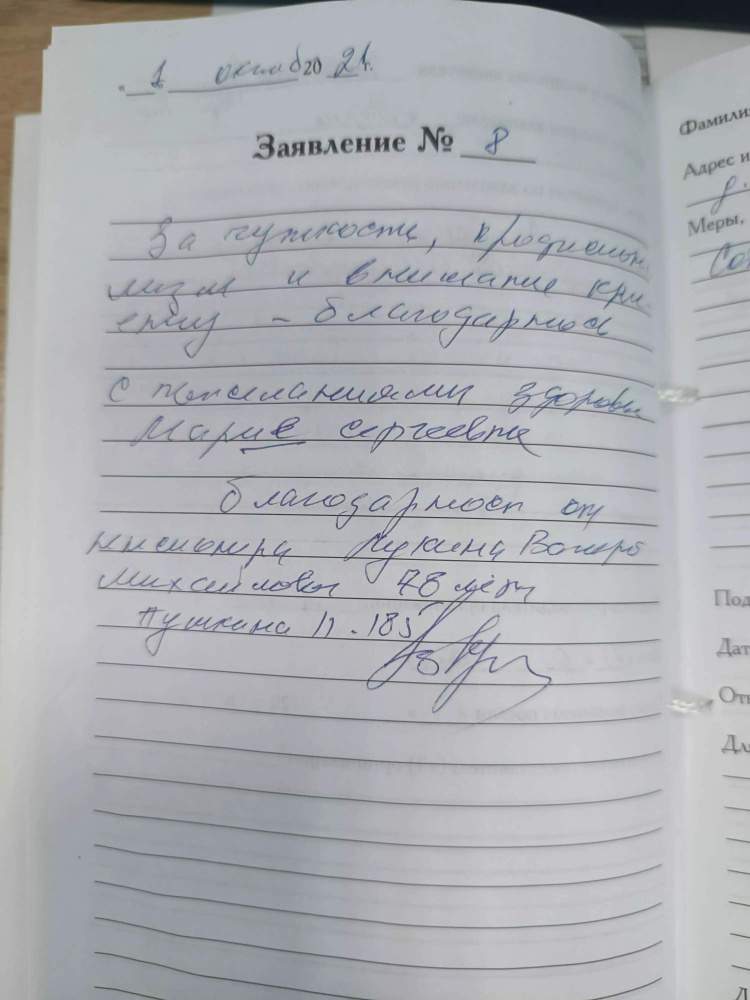 " 1 октяб 20 21 г.
Заявление № 8
За чуткость, професиона
лизм и внимание кли
енту - благодарность
с пожеланиями здоровья
Марие Сергеевне
благодарност от
пенсионера Лукина
Михайлович 78 лет
Пушкина 11.185
Фамилия
Адрес и
Меры,
Под
Дат
Отв
Для